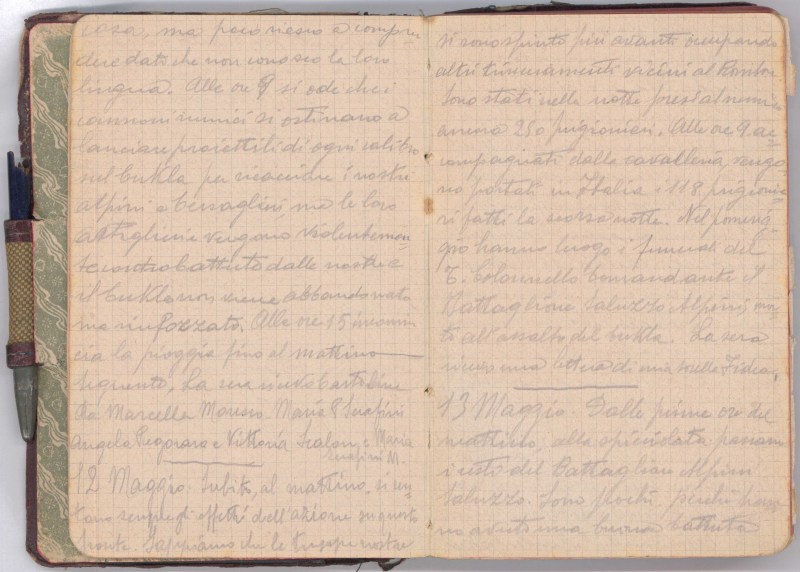 casa, ma poco riesco a compren
dere dato che non conosco la loro
lingua. Alle ore 9 si ode che i
cannoni nemici si ostinano a
lanciare proiettili di ogni calibro
sul Cukla per ricacciare i nostri
alpini e bersaglieri, ma le loro
artiglierie vengono violentemen
te controbattute dalle nostre e
il Cukla non viene abbandonato
ma rinfozzato. Alle ore 15 incomin
cia la pioggia fino al mattino
seguente. La sera ricevo cartoline
da Marcella Moruso. Maria P. Serafini
Angela Pegoraro e Vittoria Scalon, e Maria
Serafini M.
12 Maggio. Subito, al mattino, si no
tano sempre gli effetti dell'azione su questo
fronte. Sappiamo che le truppe nostre
si sono spinte più avanti occupando
altri trinceramenti vicini al Rombon
Sono stati nella notte presi al nemico
ancora 250 prigionieri. Alle ore 9 ac
compagnati dalla cavalleria, vengo
no portati in Italia i 118 prigionie
ri fatti la scorsa notte. Nel pomerig
gio hanno luogo i funerali del
T. Colonnello Comandante il
Battaglione Saluzzo Alpini mor
to all'assalto del Cukla. La sera
ricevo una lettera di mia sorella
13 Maggio. Dalle prime ore del
mattino, alla spicciolata passano
i resti del Battaglion Alpini
Saluzzo. Sono pochi perchè han
no avuto una buona battuta